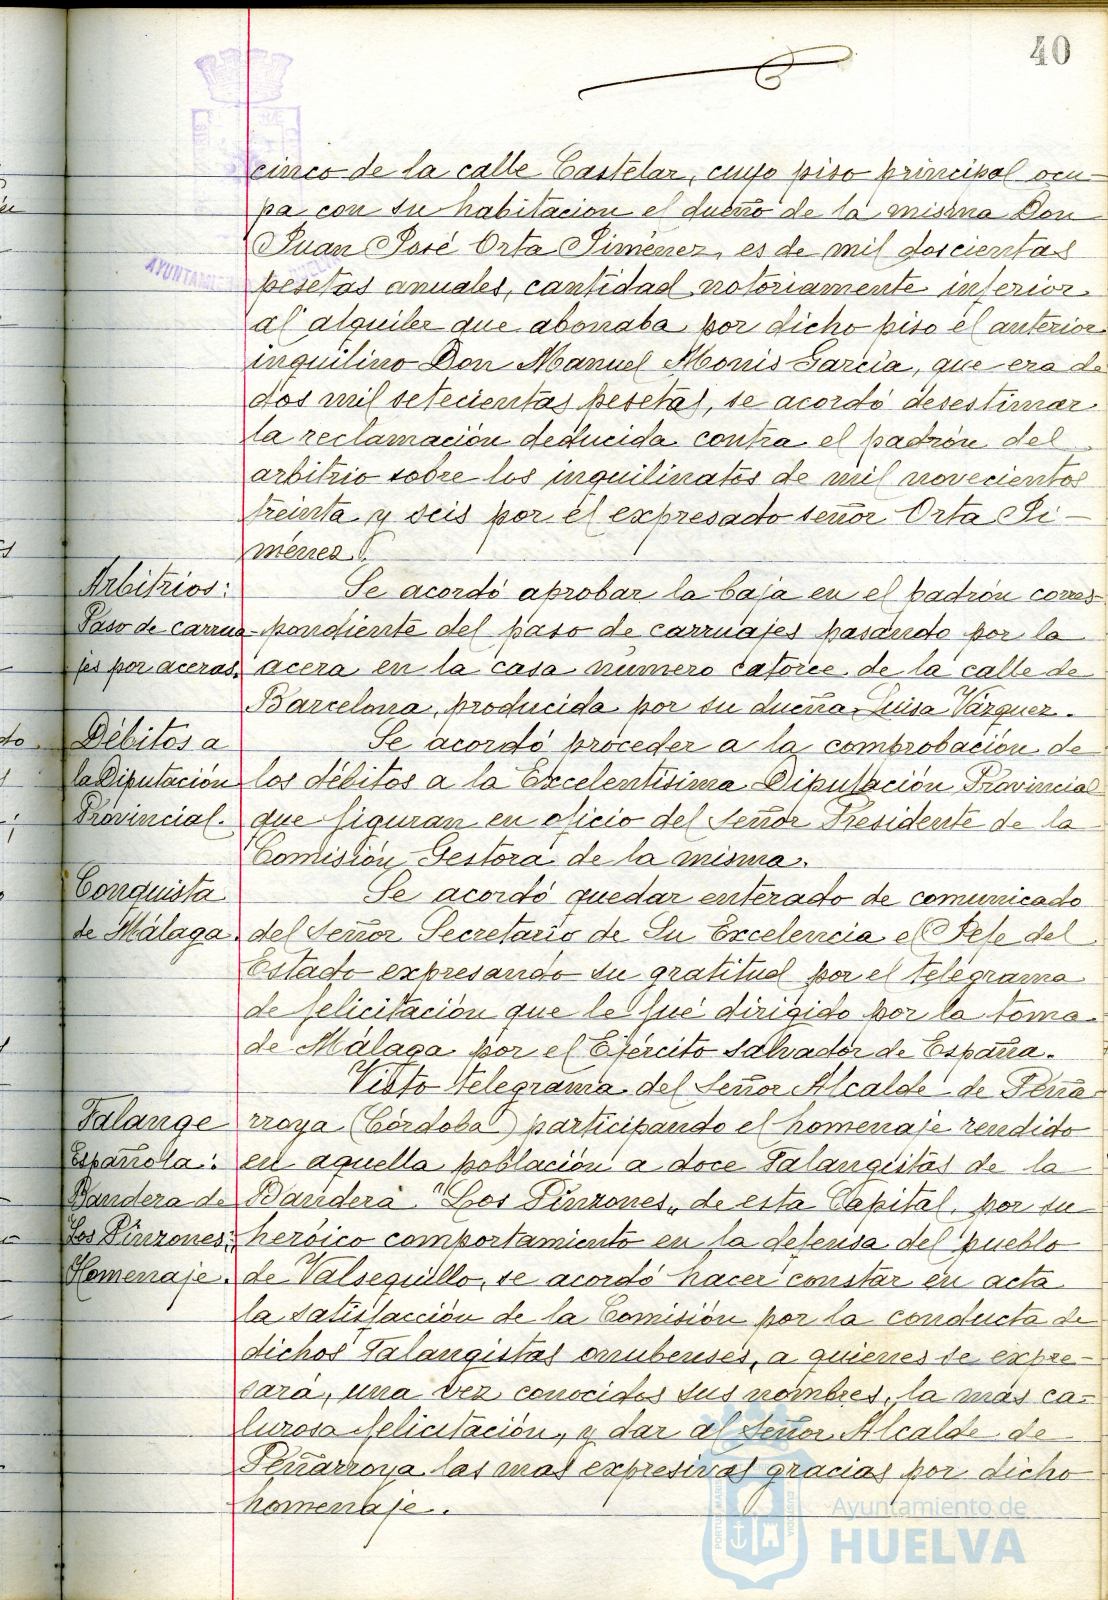 40
cinco de la calle Castelar, cuyo piso principal ocu-
pa con su habitacion el dueño de la misma Don
Juan José Orta Jiménez, es de mil doscientas
pesetas anuales, cantidad notoriamente inferior
al alquiler que abonaba por dicho piso el anterior
inquilino Don Manuel Monis García, que era de
dos mil setecientas pesetas, se acordó desestimar
la reclamación deducida contra el padrón del
arbitrio sobre los inquilinatos de mil novecientos
treinta y seis por el expresado señor Orta Ji-
ménez.
Arbitrios:
Paso de carrua-
jes por aceras.
Se acordó aprobar la baja en el padrón corres-
pondiente del paso de carruajes pasando por la
acera en la casa número catorce de la calle de
Barcelona, producida por su dueña Luisa Vázquez.
Débitos a
la Diputación
Provincial.
Se acordó proceder a la comprobación de
los débitos a la Excelentísima Diputación Provincial
que figuran en oficio del Señor Presidente de la
Comisión Gestora de la misma.
Conquista
de Málaga.
Se acordó quedar enterado de comunicado
del Señor Secretario de Su Excelencia el Jefe del
Estado expresando su gratitud por el telegrama
de felicitación que le fué dirigido por la toma
de Málaga por el Ejército salvador de España.
Falange
Española:
Bandera de
Los Pinzones:
Homenaje.
Visto telegrama del Señor Alcalde de Peña-
rroya (Córdoba) participando el homenaje rendido
en aquella población a doce Falangistas de la
Bandera "Los Pinzones" de esta Capital, por su
heróico comportamiento en la defensa del pueblo
de Valsequillo, se acordó hacer constar en acta
la satisfacción de la Comisión por la conducta de
dichos Falangistas onubenses, a quienes se expre-
sará, una vez conocidos sus nombres, la más ca-
lurosa felicitación, y dar al Señor Alcalde de
Peñarroya las mas expresivas gracias por dicho
homenaje.
Ayuntamiento de
HUELVA